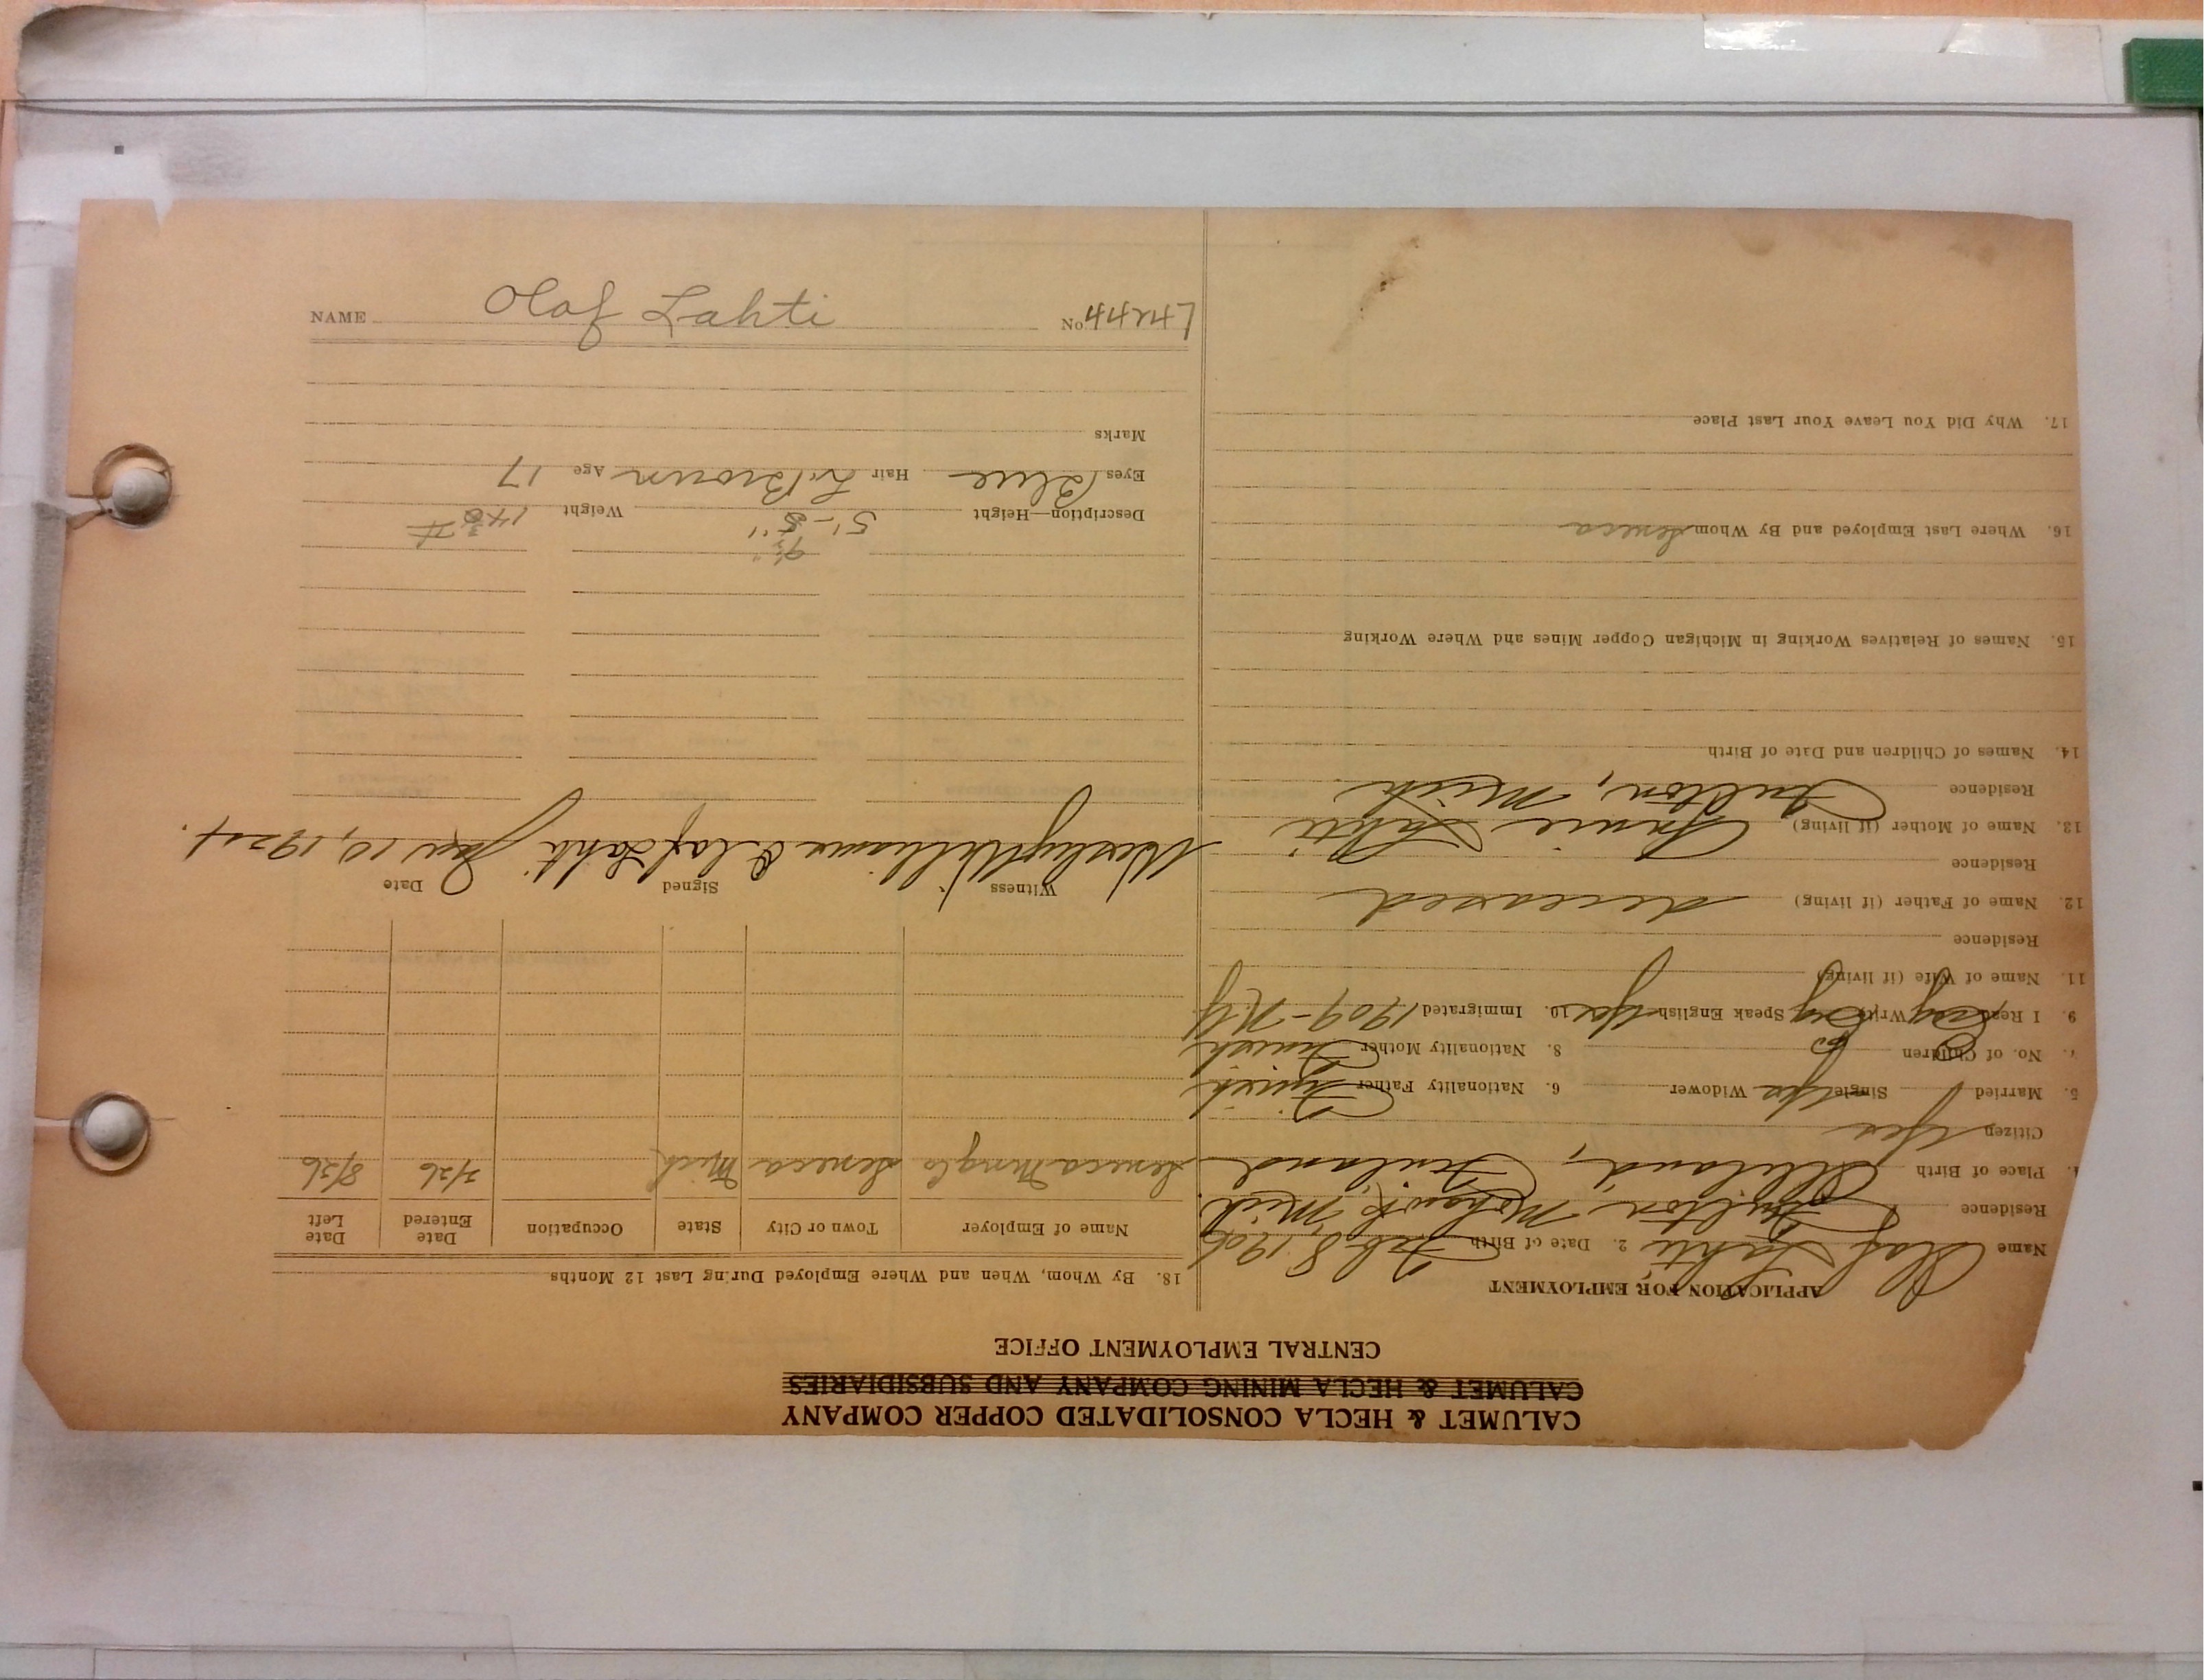 CALUMET & HECLA CONSOLIDATED COPPER COMPANY
CALUMET & HECLA MINING COMPANY AND SUBSIDIARIES
CENTRAL EMPLOYMENT OFFICE
APPLICATION FOR EMPLOYMENT
Name Olaf Lahti 2. Date of Birth Feb 8, 1906
Residence Fulton, Mohawk, Mich.
4. Place of Birth Finland
Citizen Yes
5. Married Single Yes Widower 6. Nationality Father Finnish
7. No. of Children 8. Nationality Mother Finnish
9. I Read Eng Write Eng Speak English Yes 10. Immigrated 1909 - N.Y.
11. Name of Wife (if living)
Residence
12. Name of Father (if living) deceased
Residence
13. Name of Mother (if living) Annie Lahti
Residence Fulton, Mich
14. Names of Children and Date of Birth
15. Names of Relatives Working in Michigan Copper Mines and Where Working
16. Where Last Employed and By Whom Seneca
17. Why Did You Leave Your Last Place
18. By Whom, When and Where Employed During Last 12 Months
Name of Employer Town or City State Occupation Date Entered Date Left
Seneca Mng Co Seneca Mich 7/26 8/26
Witness Signed Date
Wesley Williams Olaf Lahti Jan 10, 1924.
9½"
Description—Height 5'-8" Weight 148 #
Eyes Blue Hair Lt Brown Age 17
Marks
NAME Olaf Lahti No.